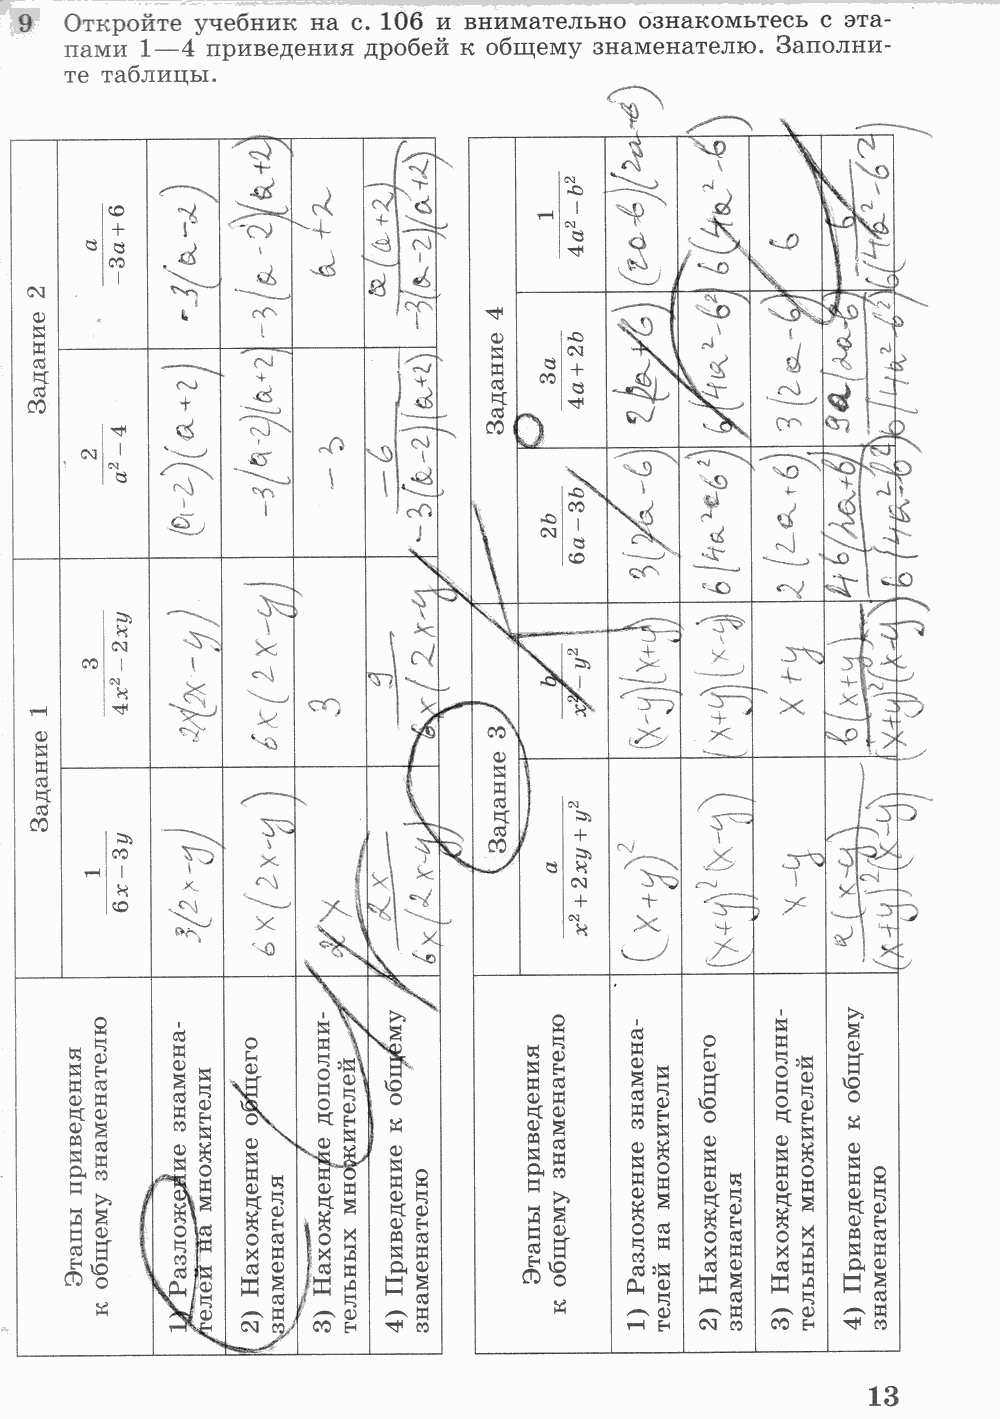 9
Откройте учебник на с. 106 и внимательно ознакомьтесь с эта-
пами 1—4 приведения дробей к общему знаменателю. Заполни-
те таблицы.
Этапы приведения
к общему знаменателю
Задание 1
Задание 2
1/(6x − 3y)
3/(4x² − 2xy)
2/(a² − 4)
a/(−3a + 6)
1) Разложение знамена-
телей на множители
3(2x−y)
2x(2x−y)
(a−2)(a+2)
−3(a−2)
2) Нахождение общего
знаменателя
6x(2x−y)
6x(2x−y)
−3(a−2)(a+2)
−3(a−2)(a+2)
3) Нахождение дополни-
тельных множителей
2x
3
−3
a+2
4) Приведение к общему
знаменателю
2x/6x(2x−y)
9/6x(2x−y)
−6/−3(a−2)(a+2)
a(a+2)/−3(a−2)(a+2)
Этапы приведения
к общему знаменателю
Задание 3
Задание 4
a/(x² + 2xy + y²)
b/(x² − y²)
2b/(6a − 3b)
3a/(4a + 2b)
1/(4a² − b²)
1) Разложение знамена-
телей на множители
(x+y)²
(x−y)(x+y)
3(2a−b)
2(2a+b)
(2a−b)(2a+b)
2) Нахождение общего
знаменателя
(x+y)²(x−y)
(x+y)(x−y)
6(4a²−b²)
6(4a²−b²)
6(4a²−b)
3) Нахождение дополни-
тельных множителей
x−y
x+y
2(2a+b)
3(2a−b)
6
4) Приведение к общему
знаменателю
a(x−y)/(x+y)²(x−y)
b(x+y)/(x+y)²(x−y)
4b(2a+b)/6(4a²−b²)
9a(2a−b)/6(4a²−b²)
6/6(4a²−b²)
13